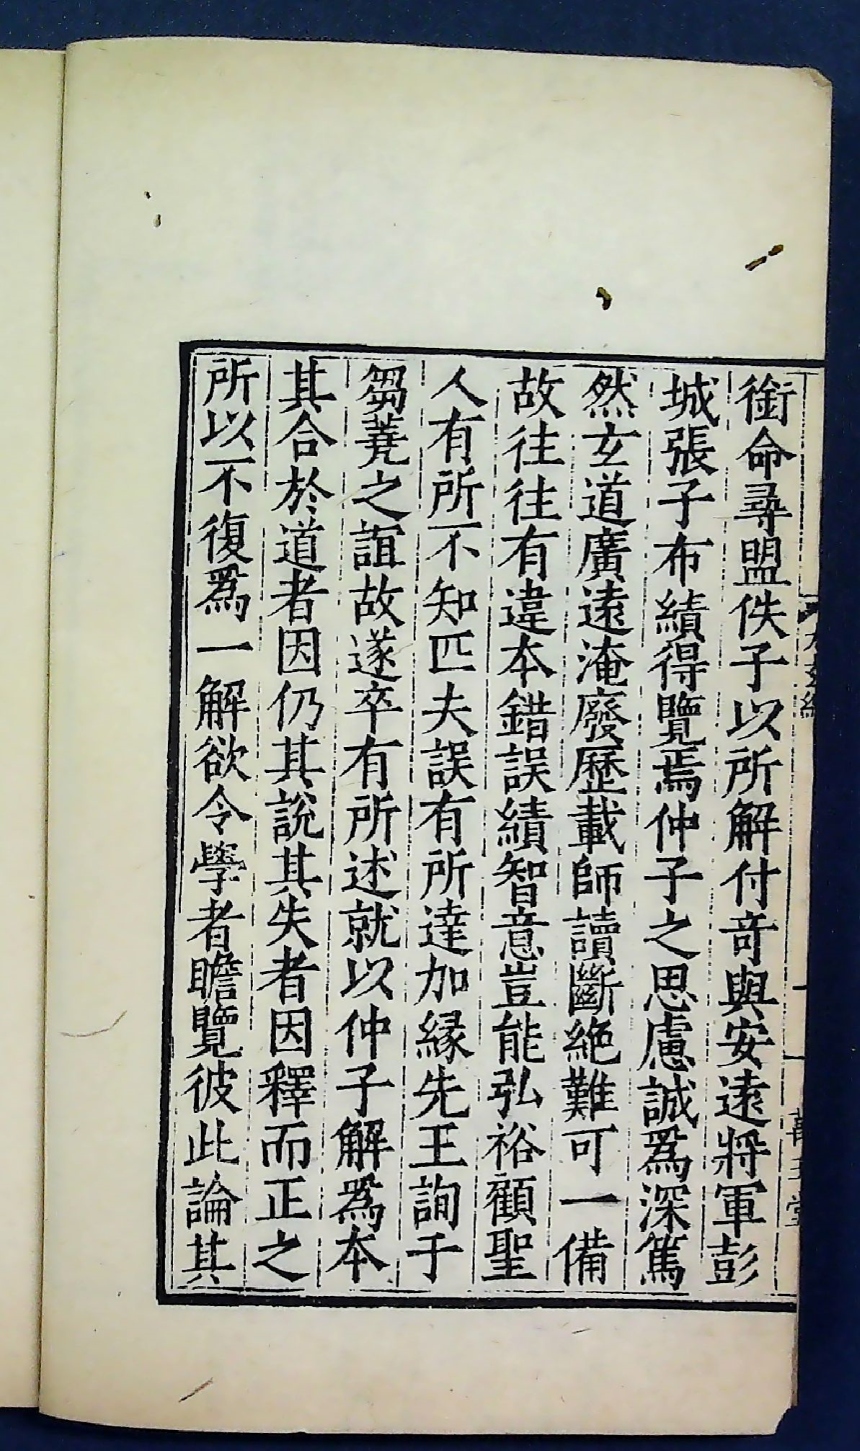 銜命尋盟佚子以所解付奇與安遠將軍彭
城張子布績得覽焉仲子之思慮誠爲深篤
然玄道廣遠淹廢歷載師讀斷絶難可一備
故往往有違本錯誤績智意豈能弘裕顧聖
人有所不知匹夫誤有所達加縁先王詢于
芻蕘之誼故遂卒有所述就以仲子解爲本
其合於道者因仍其說其失者因釋而正之
所以不復爲一解欲令學者瞻覽彼此論其